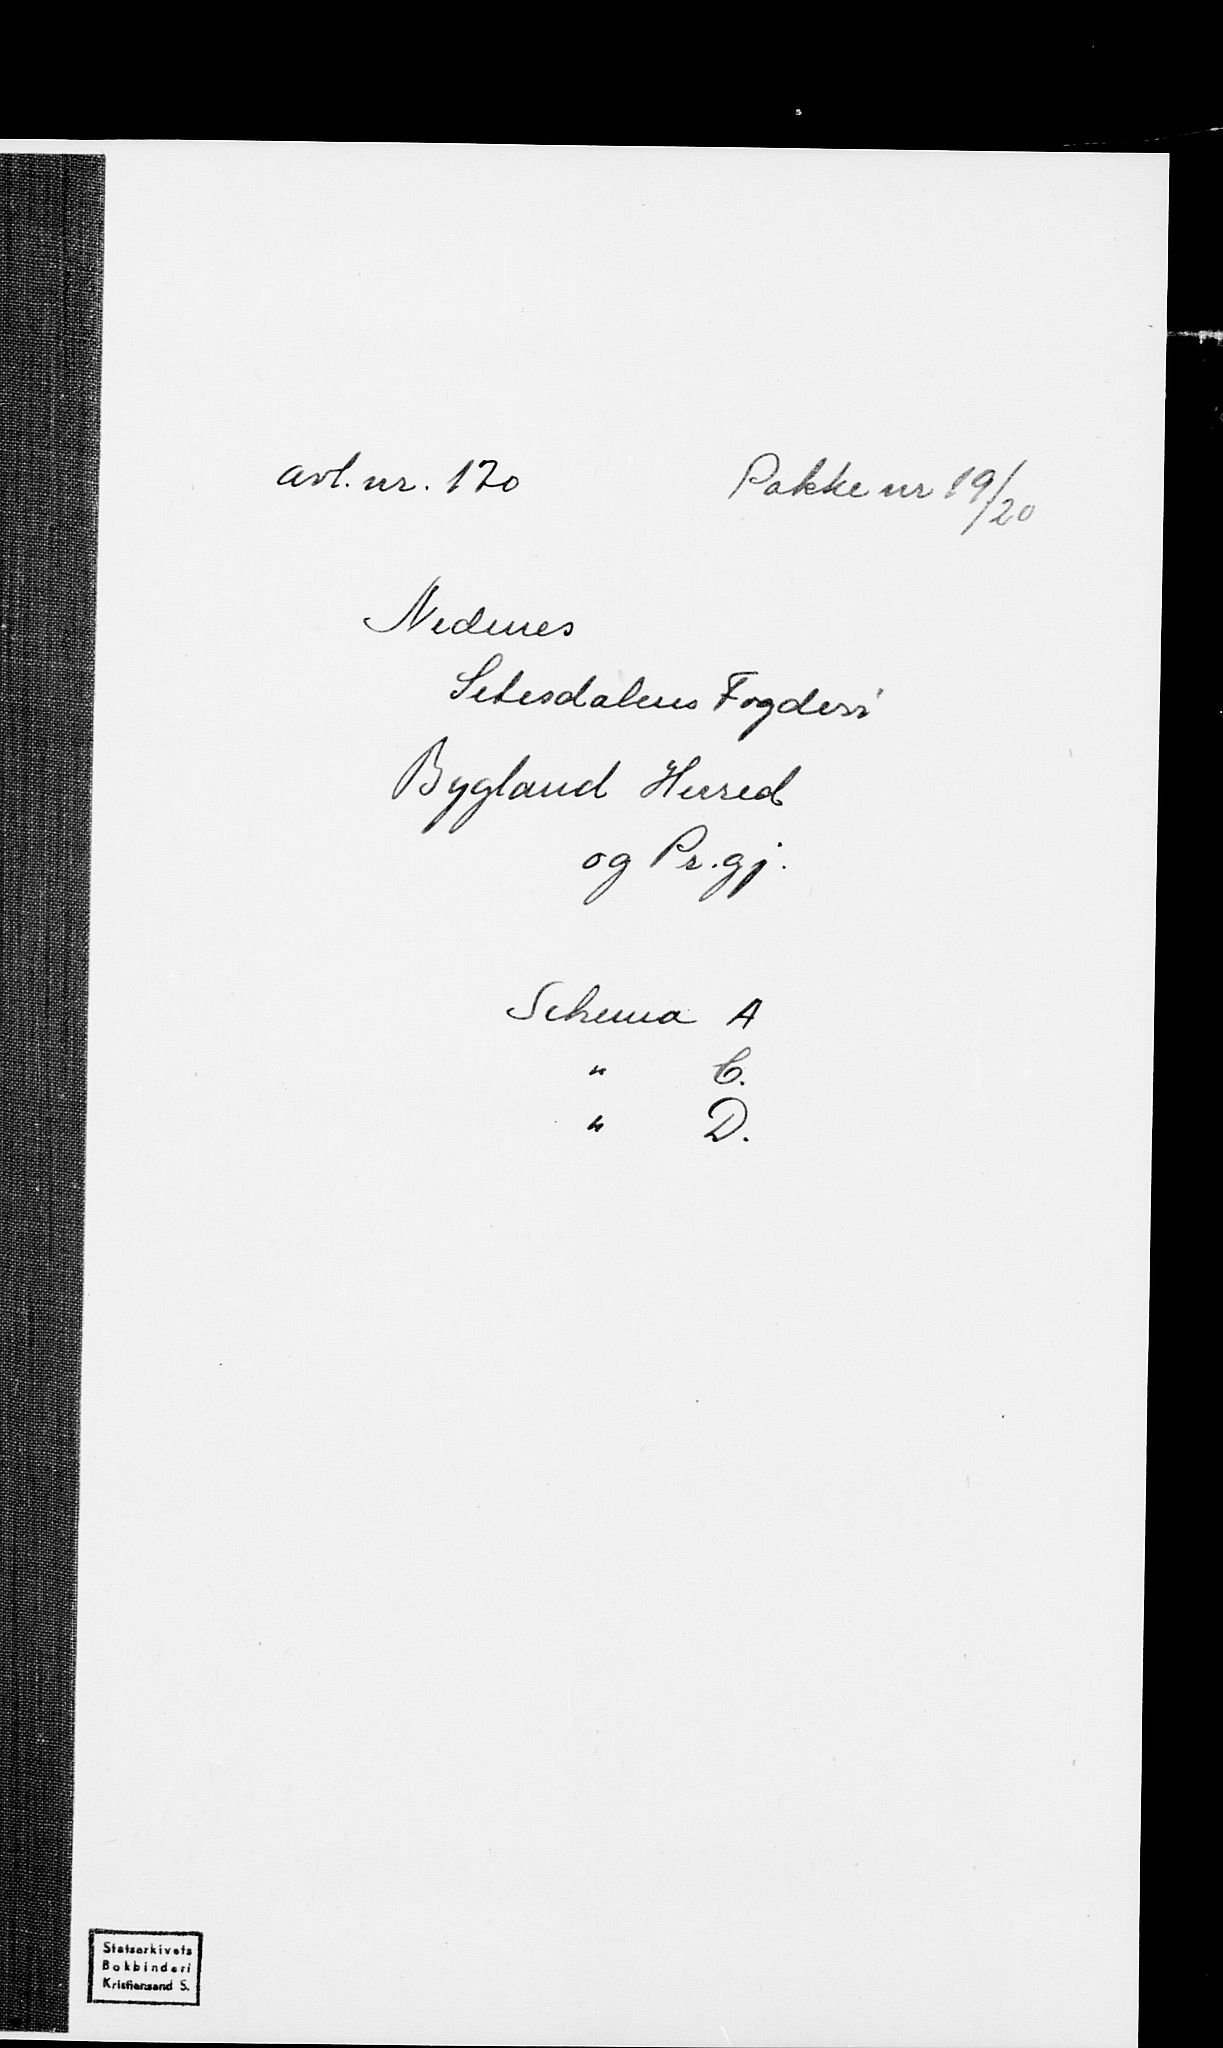 avl. nr. 170 Pakke nr 19/20
Nedenes
Setesdalens Fogderi
Bygland Herred
og Pr.gj.
Schema A
" C.
" D.
Statsarkivets
Bokbinderi
Kristiansand S.